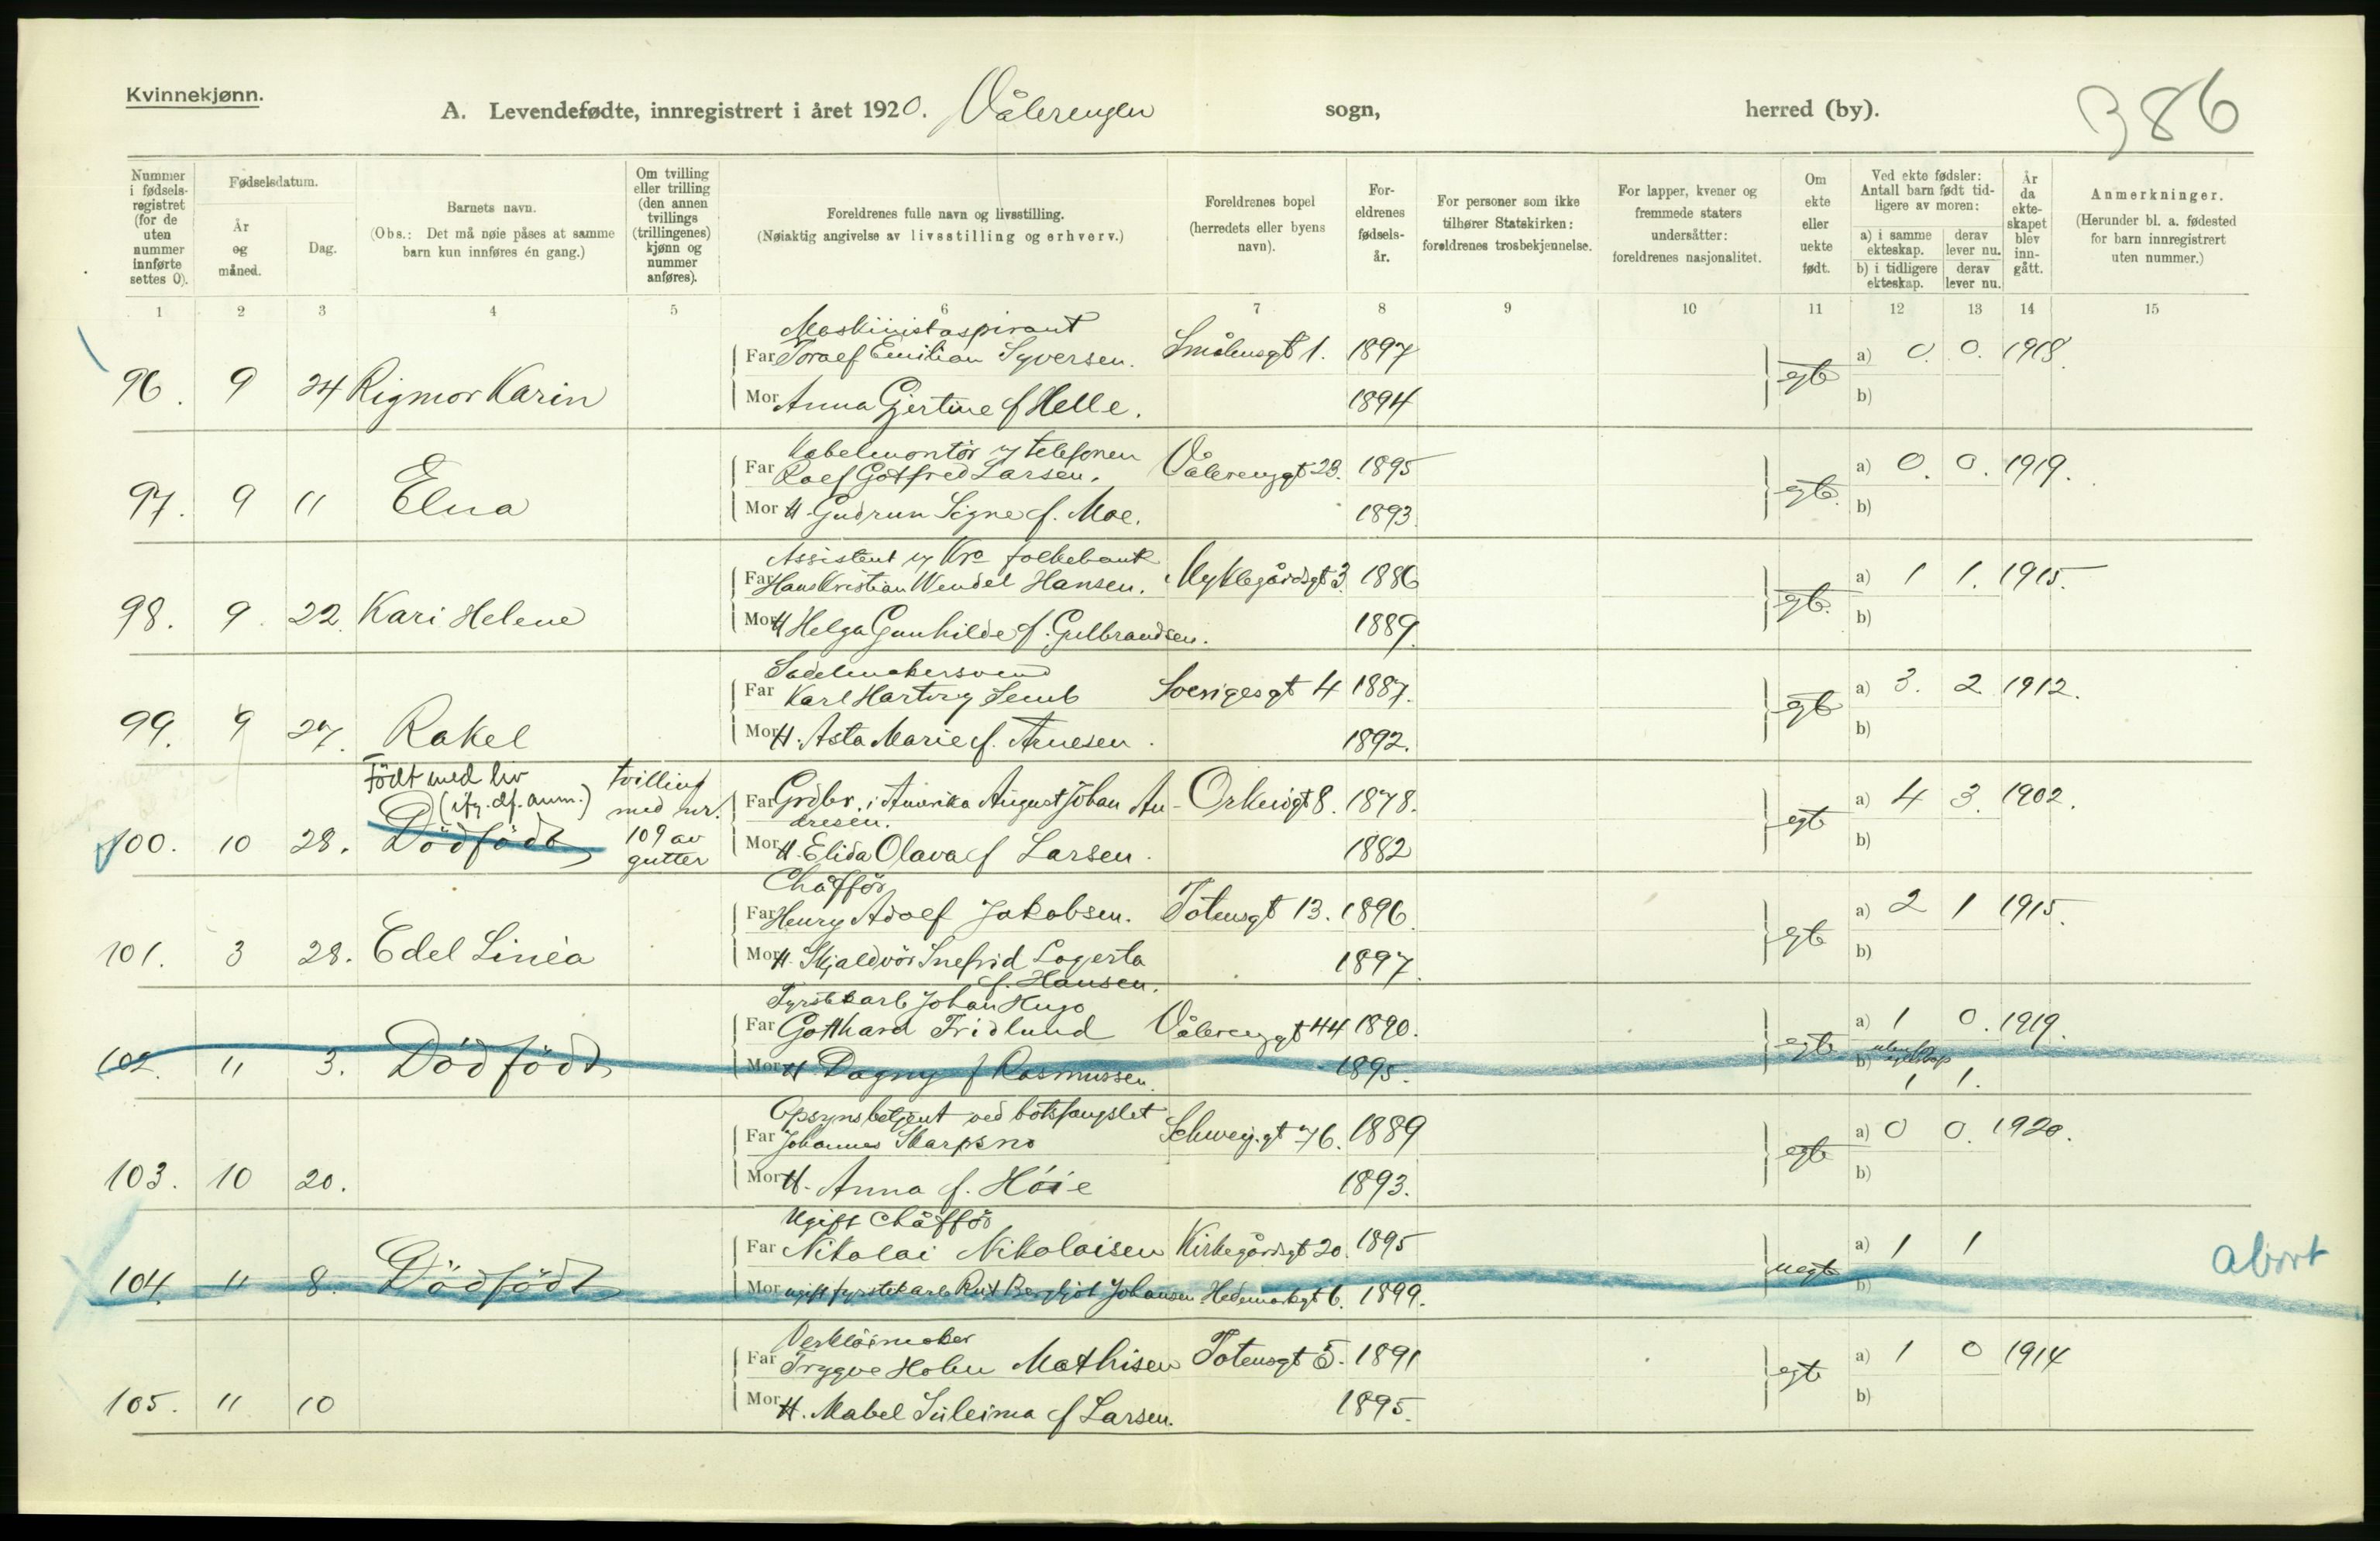 Kvinnekjønn.
A. Levendefødte, innregistrert i året 1920. Vålerengen sogn, herred (by). 386
Nummer i fødselsregistret (for de uten nummer innførte settes 0).
Fødselsdatum.
År og måned.
Dag.
Barnets navn.
(Obs.: Det må nøie påses at samme barn kun innføres én gang.)
Om tvilling eller trilling (den annen tvillings (trillingenes) kjønn og nummer anføres).
Foreldrenes fulle navn og livsstilling.
(Nøiaktig angivelse av livsstilling og erhverv.)
Foreldrenes bopel (herredets eller byens navn).
Foreldrenes fødselsår.
For personer som ikke tilhører Statskirken: foreldrenes trosbekjennelse.
For lapper, kvener og fremmede staters undersåtter: foreldrenes nasjonalitet.
Om ekte eller uekte født.
Ved ekte fødsler: Antall barn født tidligere av moren:
a) i samme ekteskap. derav lever nu.
b) i tidligere ekteskap. derav lever nu.
År da ekteskapet blev inngått.
Anmerkninger.
(Herunder bl. a. fødested for barn innregistrert uten nummer.)
1 2 3 4 5 6 7 8 9 10 11 12 13 14 15
Maskinistaspirant
Far Toralf Emilian Syversen. Smålensgt 1. 1897 a) 0. 0. 1918.
96. 9 24 Rigmor Karin egte
Mor Anna Gjertine f Helle. 1894 b)
Kabelmontör v telefonen
Far Rolf Gotfred Larsen. Vålerenggt 23. 1895 a) 0. 0. 1919.
97. 9 11 Elna egte.
Mor H. Gudrun Signe f. Moe. 1893. b)
Assistent v Kra folkebank
Far Hans Kristian Wendel Hansen. Myklegårdsgt 3. 1886 a) 1 1. 1915.
98. 9. 22. Kari Helene egte.
Mor H Helga Gunhilde f. Gulbrandsen. 1889. b)
Sadelmakersvend
Far Karl Hartvig Semb Sverigesgt 4 1887. a) 3. 2 1912.
99. 9 27. Rakel egte
Mor H. Asta Marie f. Arnesen. 1892. b)
Födt med liv tvilling
(ifg. df. anm.) med nr.
Far Grdbr. i Amerika August Johan An- Orknøgt 8. 1878. a) 4 3. 1902.
dresen.
100. 10 28. Dödfödt 109 av gutter egte
Mor H. Elida Olava f Larsen. 1882 b)
Chåfför
Far Henry Adolf Jakobsen. Totensgt 13. 1896. a) 2 1 1915.
101. 3 28. Edel Linéa egte
Mor H. Skjaldvör Snefrid Lagerta 1897. b)
f. Hansen.
Fyrstikarb Johan Hugo
Far Gotthard Fridlund Vålerenggt 44 1890. a) 1 0. 1919.
102. 11 3. Dödfödt egte
Mor H Dagny f Rasmussen. 1895. b) 1 1.
Opsynsbetjent ved botsfængslet
Far Johannes Skarpsno Schweig.gt 76. 1889 a) 0 0. 1920.
103. 10 20. egte
Mor H. Anna f. Höie 1893. b)
Ugift Chåfför
Far Nikolai Nikolaisen Kirkegårdsgt 20. 1895 a) 1 1
104. 11 8. Dödfödt uegte abort
Mor ugift fyrstikarb Rut Bergljot Johansen Hedemarkgt 6. 1899. b)
Verktöimaker
Far Trygve Holm Mathisen Totensgt 5. 1891 a) 1 0 1914
105. 11 10 egte
Mor H. Mabel Suleima f Larsen. 1895. b)